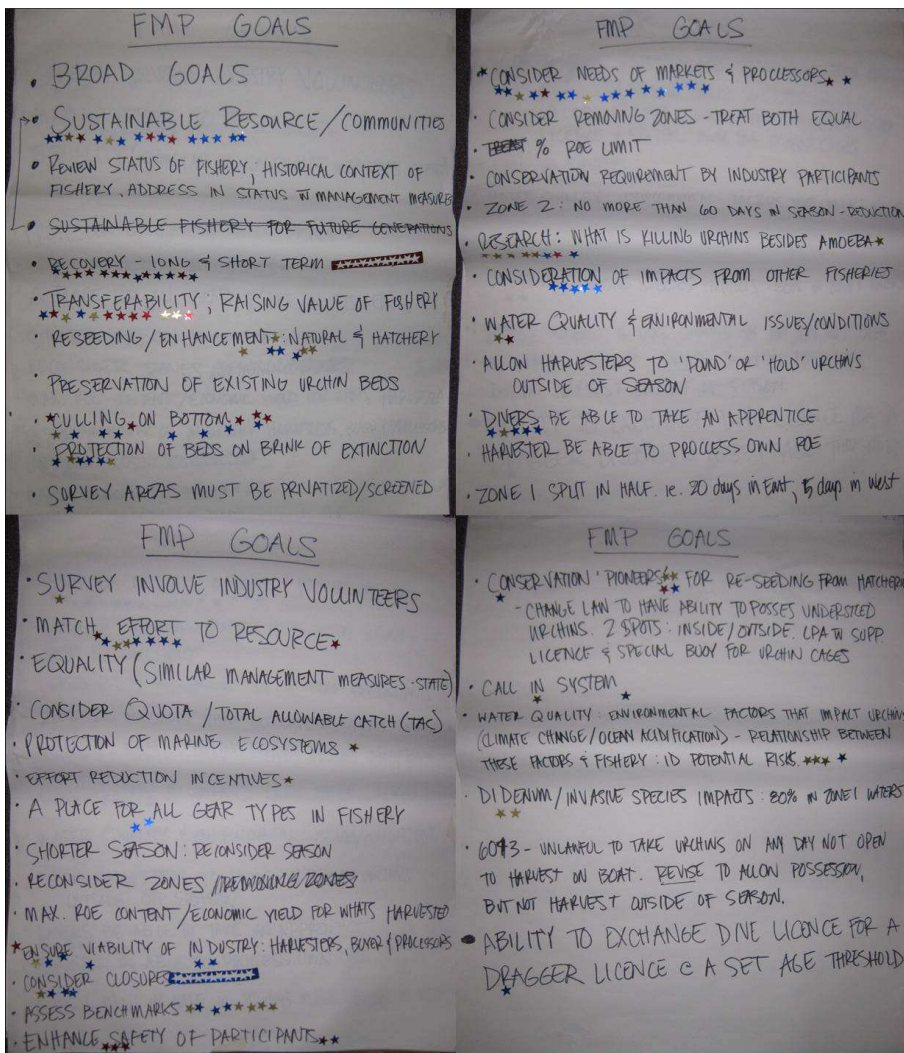 FMP GOALS
• BROAD GOALS
• SUSTAINABLE RESOURCE/COMMUNITIES
• REVIEW STATUS OF FISHERY, HISTORICAL CONTEXT OF
FISHERY. ADDRESS IN STATUS MANAGEMENT MEASURES
• SUSTAINABLE FISHERY FOR FUTURE GENERATIONS
• RECOVERY - LONG & SHORT TERM
• TRANSFERABILITY; RAISING VALUE OF FISHERY
• RESEEDING/ENHANCEMENT: NATURAL & HATCHERY
• PRESERVATION OF EXISTING URCHIN BEDS
• CULLING ON BOTTOM
• PROTECTION OF BEDS ON BRINK OF EXTINCTION
• SURVEY AREAS MUST BE PRIVATIZED/SCREENED
FMP GOALS
• CONSIDER NEEDS OF MARKETS & PROCCESSORS
• CONSIDER REMOVING ZONES - TREAT BOTH EQUAL
• TREAT % ROE LIMIT
• CONSERVATION REQUIREMENT BY INDUSTRY PARTICIPANTS
• ZONE 2: NO MORE THAN 60 DAYS IN SEASON - REDUCTION
• RESEARCH: WHAT IS KILLING URCHINS BESIDES AMOEBA
• CONSIDERATION OF IMPACTS FROM OTHER FISHERIES
• WATER QUALITY & ENVIRONMENTAL ISSUES/CONDITIONS
• ALLOW HARVESTERS TO 'POUND' OR 'HOLD' URCHINS
OUTSIDE OF SEASON
• DIVERS BE ABLE TO TAKE AN APPRENTICE
• HARVESTER BE ABLE TO PROCCESS OWN ROE
• ZONE 1 SPLIT IN HALF. ie. 20 days in East, 5 day in West
FMP GOALS
• SURVEY INVOLVE INDUSTRY VOLUNTEERS
• MATCH EFFORT TO RESOURCE
• EQUALITY (SIMILAR MANAGEMENT MEASURES - STATE)
• CONSIDER QUOTA / TOTAL ALLOWABLE CATCH (TAC)
• PROTECTION OF MARINE ECOSYSTEMS
• EFFORT REDUCTION INCENTIVES
• A PLACE FOR ALL GEAR TYPES IN FISHERY
• SHORTER SEASON: RECONSIDER SEASON
• RECONSIDER ZONES /REMOVING ZONES
• MAX. ROE CONTENT/ECONOMIC YIELD FOR WHATS HARVESTED
• ENSURE VIABILITY OF INDUSTRY: HARVESTERS, BUYER & PROCESSORS
• CONSIDER CLOSURES
• ASSESS BENCHMARKS
• ENHANCE SAFETY OF PARTICIPANTS
FMP GOALS
• CONSERVATION 'PIONEERS' FOR RE-SEEDING FROM HATCHERIE
- CHANGE LAW TO HAVE ABILITY TO POSSES UNDERSIZED
URCHINS. 2 SPOTS: INSIDE/OUTSIDE. SUPP.
LICENCE & SPECIAL BUOY FOR URCHIN CAGES
• CALL IN SYSTEM
• WATER QUALITY: ENVIRONMENTAL FACTORS THAT IMPACT URCHINS
(CLIMATE CHANGE/OCEAN ACIDIFICATION) - RELATIONSHIP BETWEEN
THESE FACTORS & FISHERY: ID POTENTIAL RISKS.
• DIDENUM/INVASIVE SPECIES IMPACTS: 80% IN ZONE 1 WATERS
• UNLAWFUL TO TAKE URCHINS ON ANY DAY NOT OPEN
TO HARVEST ON BOAT. REVISE TO ALLOW POSSESSION,
BUT NOT HARVEST OUTSIDE OF SEASON.
• ABILITY TO EXCHANGE DIVE LICENCE FOR A
DRAGGER LICENCE @ A SET AGE THRESHOLD